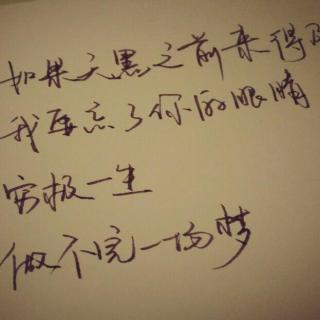 如果天黑之前来得及
我要忘了你的眼睛
穷极一生
做不完一场梦